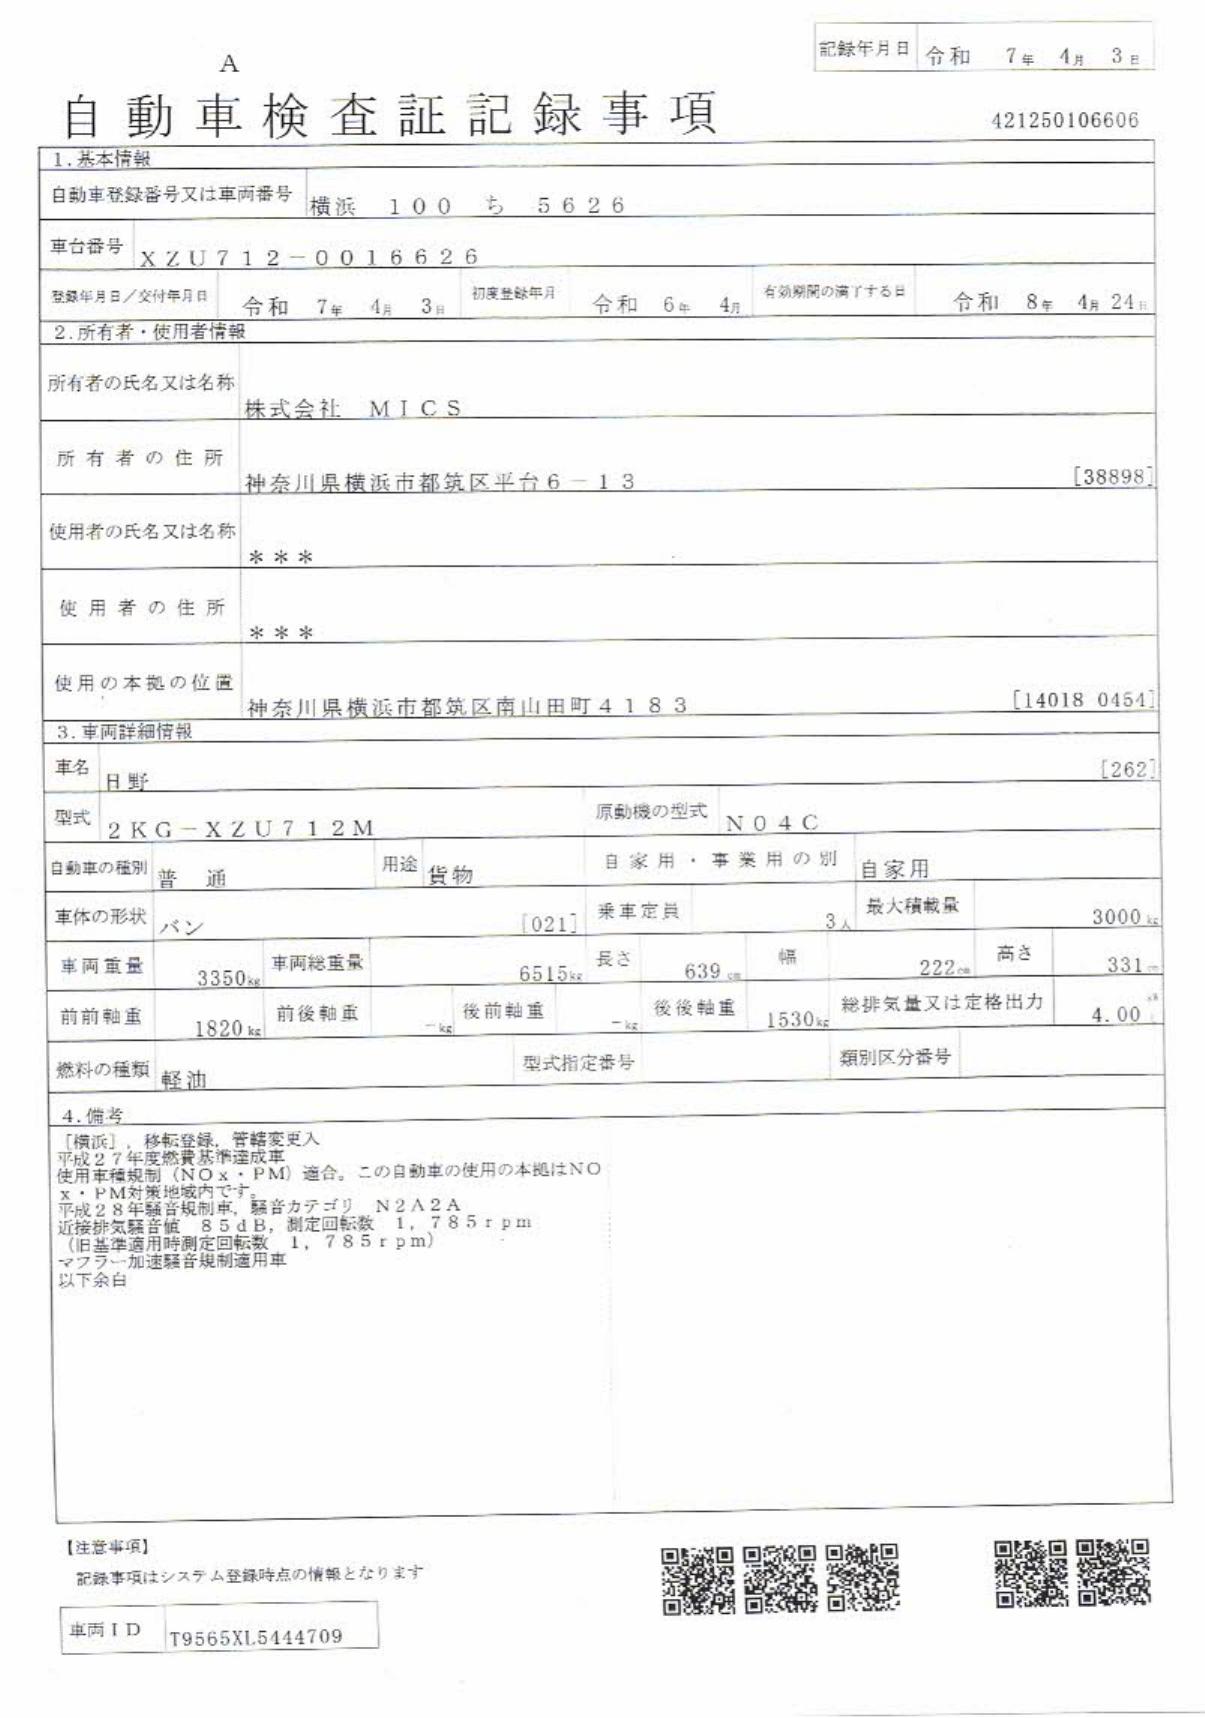 記録年月日 令和 7年 4月 3日
A
自動車検査証記録事項
421250106606
1.基本情報
自動車登録番号又は車両番号 横浜 100 ち 5626
車台番号 XZU712-0016626
登録年月日/交付年月日 令和 7年 4月 3日 初度登録年月 令和 6年 4月 有効期間の満了する日 令和 8年 4月 24日
2.所有者・使用者情報
所有者の氏名又は名称 株式会社 MICS
所有者の住所 神奈川県横浜市都筑区平台6-13 [38898]
使用者の氏名又は名称 ***
使用者の住所 ***
使用の本拠の位置 神奈川県横浜市都筑区南山田町4183 [14018 0454]
3.車両詳細情報
車名 日野 [262]
型式 2KG-XZU712M 原動機の型式 N04C
自動車の種別 普通 用途 貨物 自家用・事業用の別 自家用
車体の形状 バン [021] 乗車定員 3人 最大積載量 3000kg
車両重量 3350kg 車両総重量 6515kg 長さ 639cm 幅 222cm 高さ 331cm
前前軸重 1820kg 前後軸重 -kg 後前軸重 -kg 後後軸重 1530kg 総排気量又は定格出力 4.00 kW
燃料の種類 軽油 型式指定番号 類別区分番号
4.備考
[横浜],移転登録,管轄変更入
平成27年度燃費基準達成車
使用車種規制(NOx・PM)適合。この自動車の使用の本拠はNO
x・PM対策地域内です。
平成28年騒音規制車,騒音カテゴリ N2A2A
近接排気騒音値 85dB,測定回転数 1,785rpm
(旧基準適用時測定回転数 1,785rpm)
マフラー加速騒音規制適用車
以下余白
【注意事項】
記録事項はシステム登録時点の情報となります
車両ID T9565XL5444709